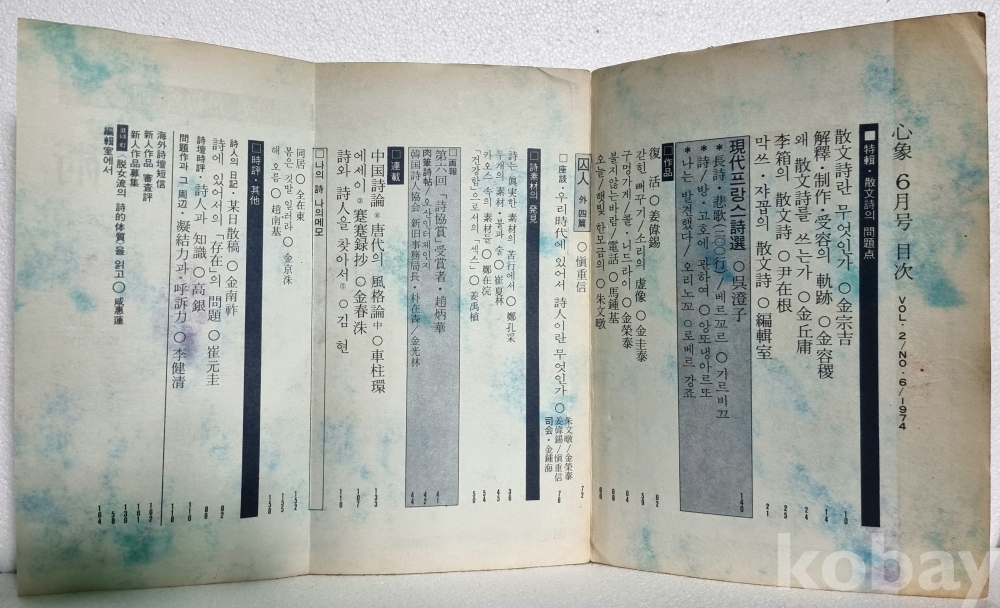 心象 6月号 目次
VOL·2/NO·6/1974
■特輯·散文詩의 問題点
散文詩란 무엇인가 ○ 金宗吉 10
解釋·制作·受容의 軌跡 ○ 金容稷 14
왜 散文詩를 쓰는가 ○ 金丘庸 24
李箱의 散文詩 ○ 尹在根 25
막쓰·쟈꼽의 散文詩 ○ 編輯室 21
現代프랑스詩選 ○ 吳澄子 140
*長詩/悲歌(三○○行)/베르꼬르 ○ 기르비끄
*詩/방·고호에 관하여 ○ 앙또냉아르또
*나는 발견했다/오리노꼬 ○ 로베르 강죠
□作品
復活 ○ 姜偉錫 62
갇힌 뻐꾸기/소리의 虛像 ○ 金圭泰 59
구멍가게/콜·니드라이 ○ 金榮泰 64
불지않는바람/電話 ○ 馬鍾基 60
오늘/햇빛 한모금의 ○ 朱文暾 66
囚人 外四篇 ○ 愼重信 72
□座談·우리時代에 있어서 詩人이란 무엇인가 ○ 朱文暾/金榮泰 姜偉錫/愼重信 司会·金鍾海 76
□詩素材의 発見
詩는 眞実한 素材의 苦行에서 ○ 鄭孔采 36
두개의 素材·붕과 술 ○ 崔夏林 45
카오스 속의 素材들 ○ 鄭在浣 54
「전경험」으로서의 「섹스」 ○ 姜禹植 50
□画報
第六回「詩協賞」受賞者·趙炳華 41
肉筆詩帖/오산인터체인지 42
韓国詩人協会 新旧事務局長·朴在森/金光林 44
□連載
中国詩論 ⑥ 唐代의 風格論 中 ○ 車柱環 135
에세이 ③ 蹇蹇録抄 ○ 金春洙 107
詩와 詩人을 찾아서 ① ○ 김 현 110
□나의 詩 나의메모
同居 ○ 全在東 152
붉은 깃발 일러라 ○ 金京洙 155
해 오름 ○ 趙南基 158
■時評·其他
詩人의 日記·某日散稿 ○ 金南祚 82
詩에 있어서의 「存在」의 問題 ○ 崔元圭 88
詩壇時評·詩人과 知識 ○ 高銀 116
問題作과 그 周辺·凝結力과 呼訴力 ○ 李健清 118
海外詩壇短信 162
新人作品 審査評 161
新人作品募集 139
脱女流의 詩的体質을 읽고 ○ 咸惠蓮 58
編輯室에서 164
kobay